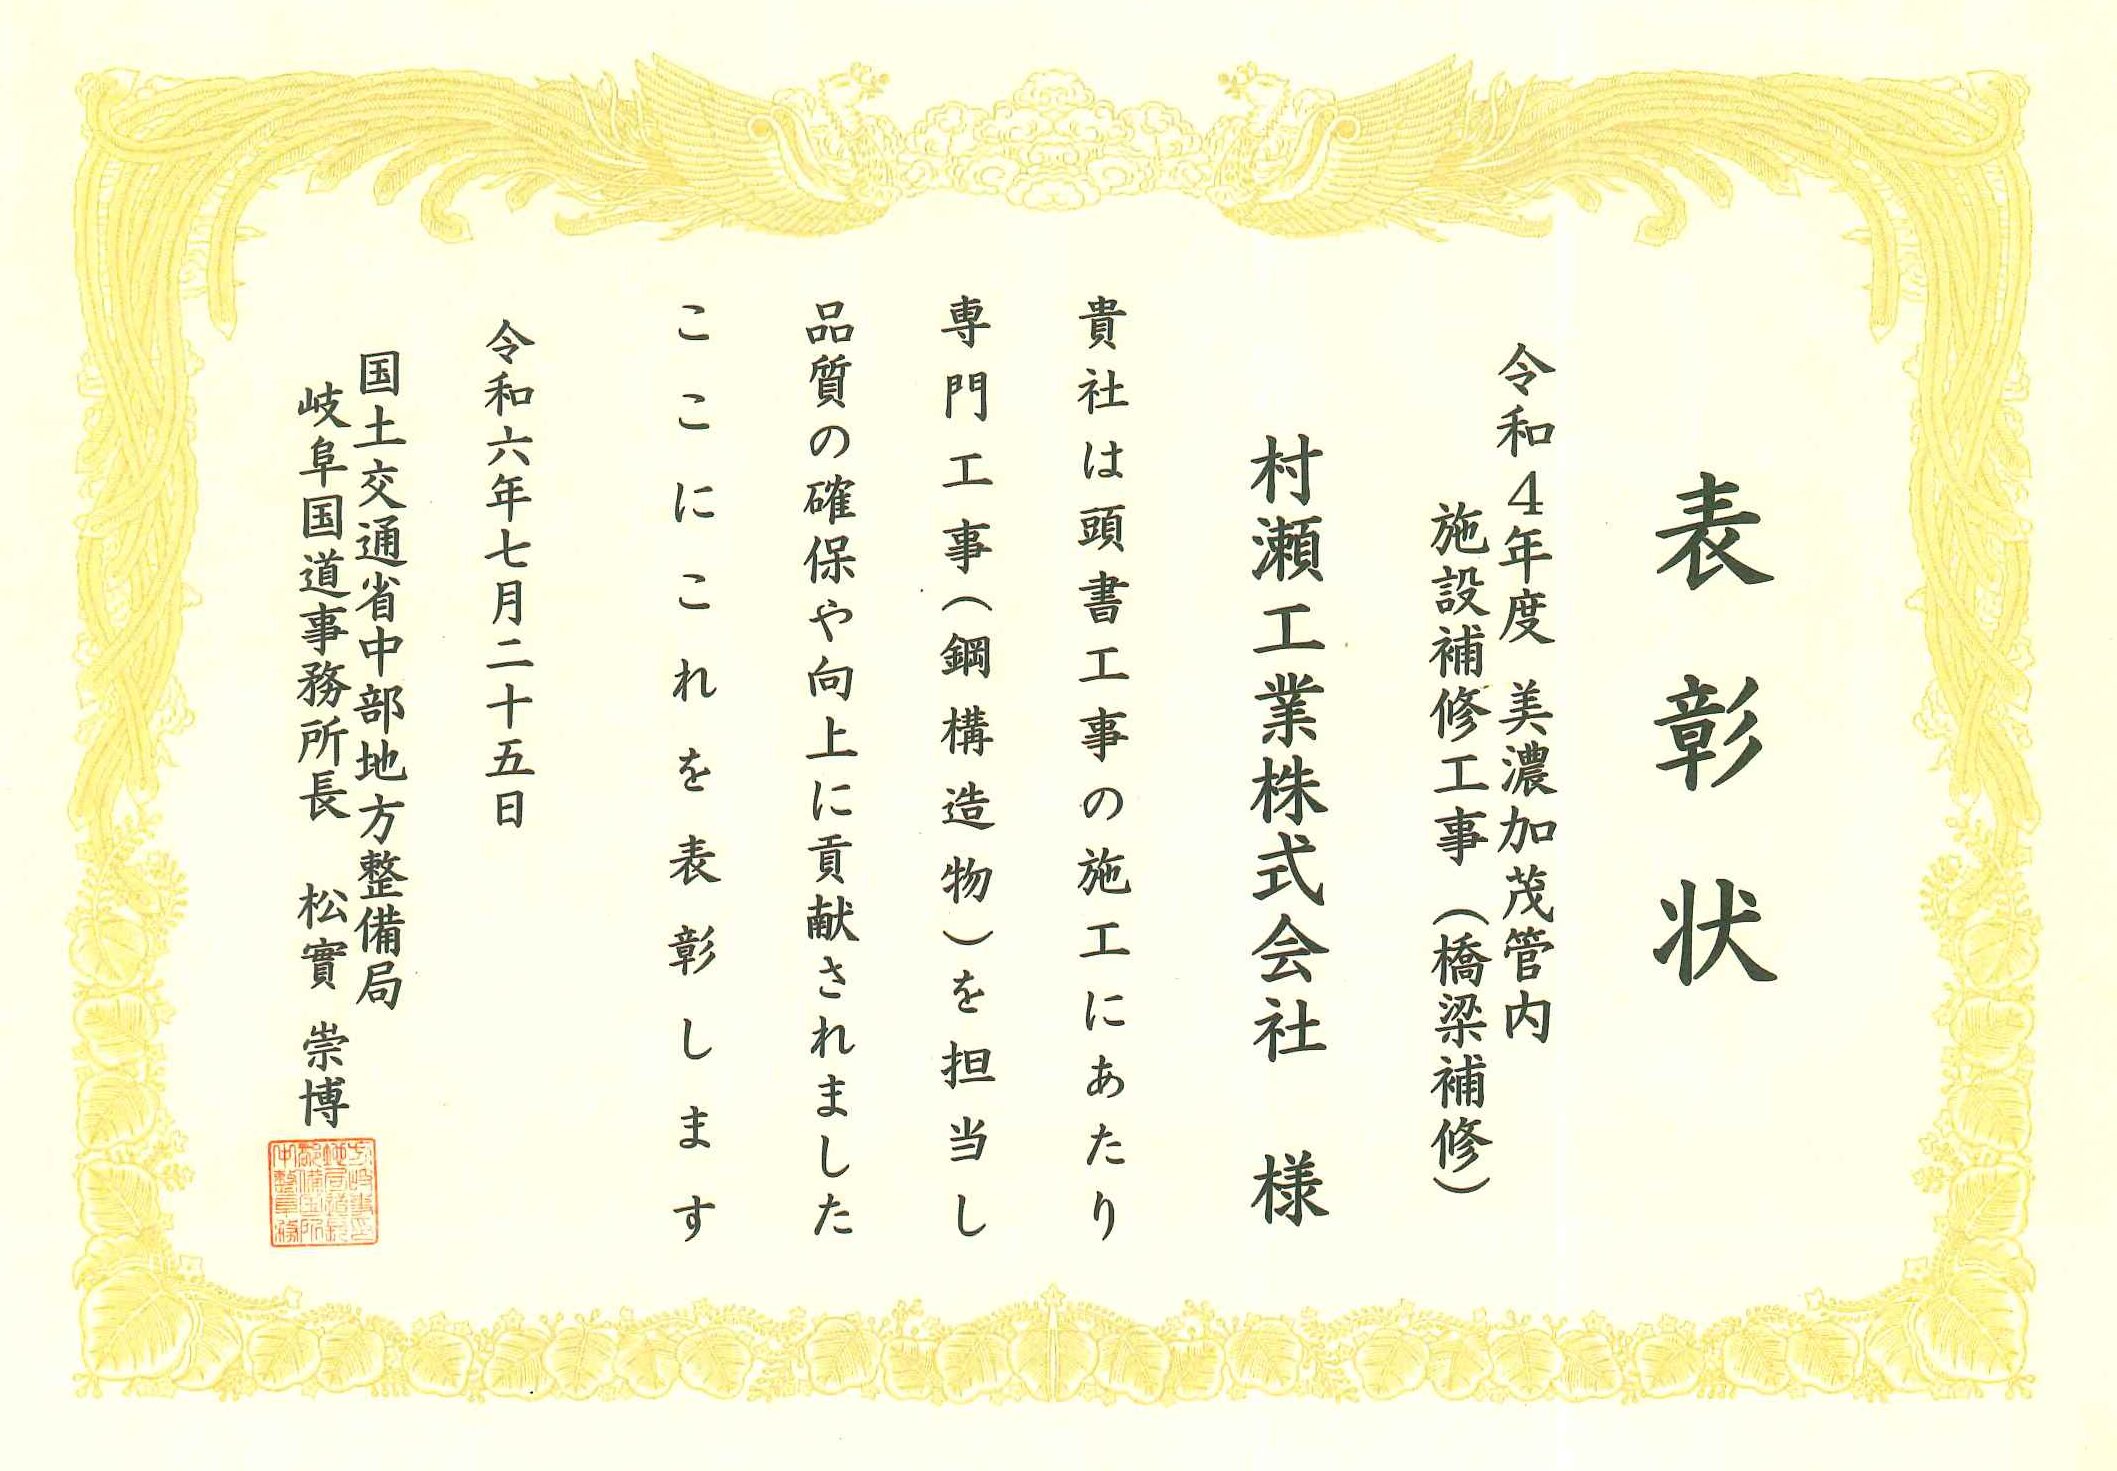 表彰状
令和4年度 美濃加茂管内
施設補修工事（橋梁補修）
村瀬工業株式会社 様
貴社は頭書工事の施工にあたり
専門工事（鋼構造物）を担当し
品質の確保や向上に貢献されました
ここにこれを表彰します
令和六年七月二十五日
国土交通省中部地方整備局
岐阜国道事務所長 松實 崇博